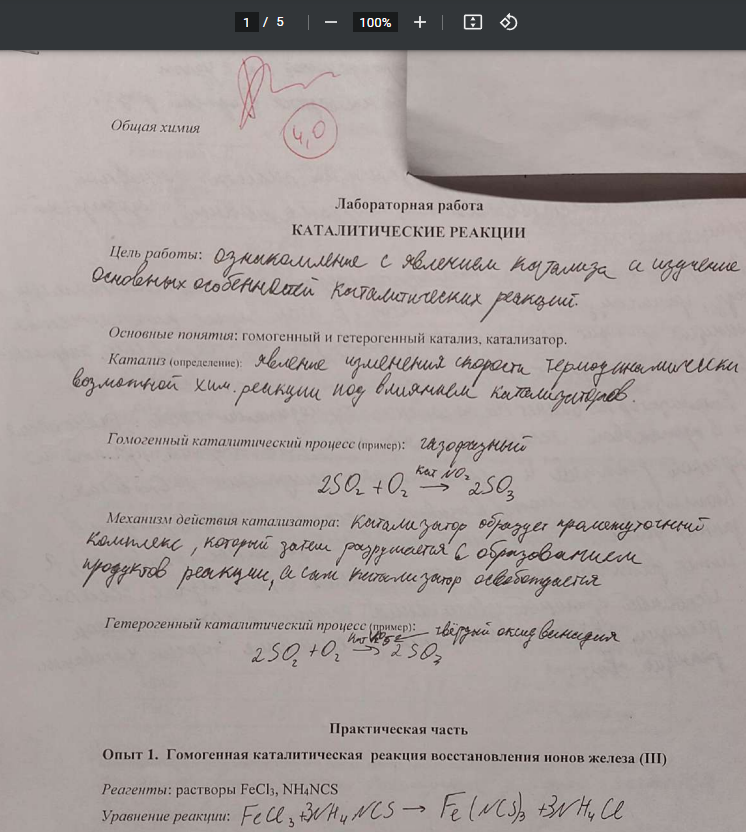 1 / 5
100%
4,0
Общая химия
Лабораторная работа
КАТАЛИТИЧЕСКИЕ РЕАКЦИИ
Цель работы: ознакомление с явлением катализа и изучение
основных особенностей каталитических реакций.
Основные понятия: гомогенный и гетерогенный катализ, катализатор.
Катализ (определение): явление изменения скорости термодинамически
возможной хим. реакции под влиянием катализаторов.
Гомогенный каталитический процесс (пример): газофазный
2SO₂ + O₂ кат NO₂ → 2SO₃
Механизм действия катализатора: Катализатор образует промежуточный
комплекс, который затем разрушается с образованием
продуктов реакции, а сам катализатор освобождается
Гетерогенный каталитический процесс (пример): твёрдый оксид ванадия
2SO₂ + O₂ кат → 2SO₃
Практическая часть
Опыт 1. Гомогенная каталитическая реакция восстановления ионов железа (III)
Реагенты: растворы FeCl₃, NH4NCS
Уравнение реакции: FeCl₃ + 3NH₄NCS → Fe(NCS)₃ + 3NH₄Cl